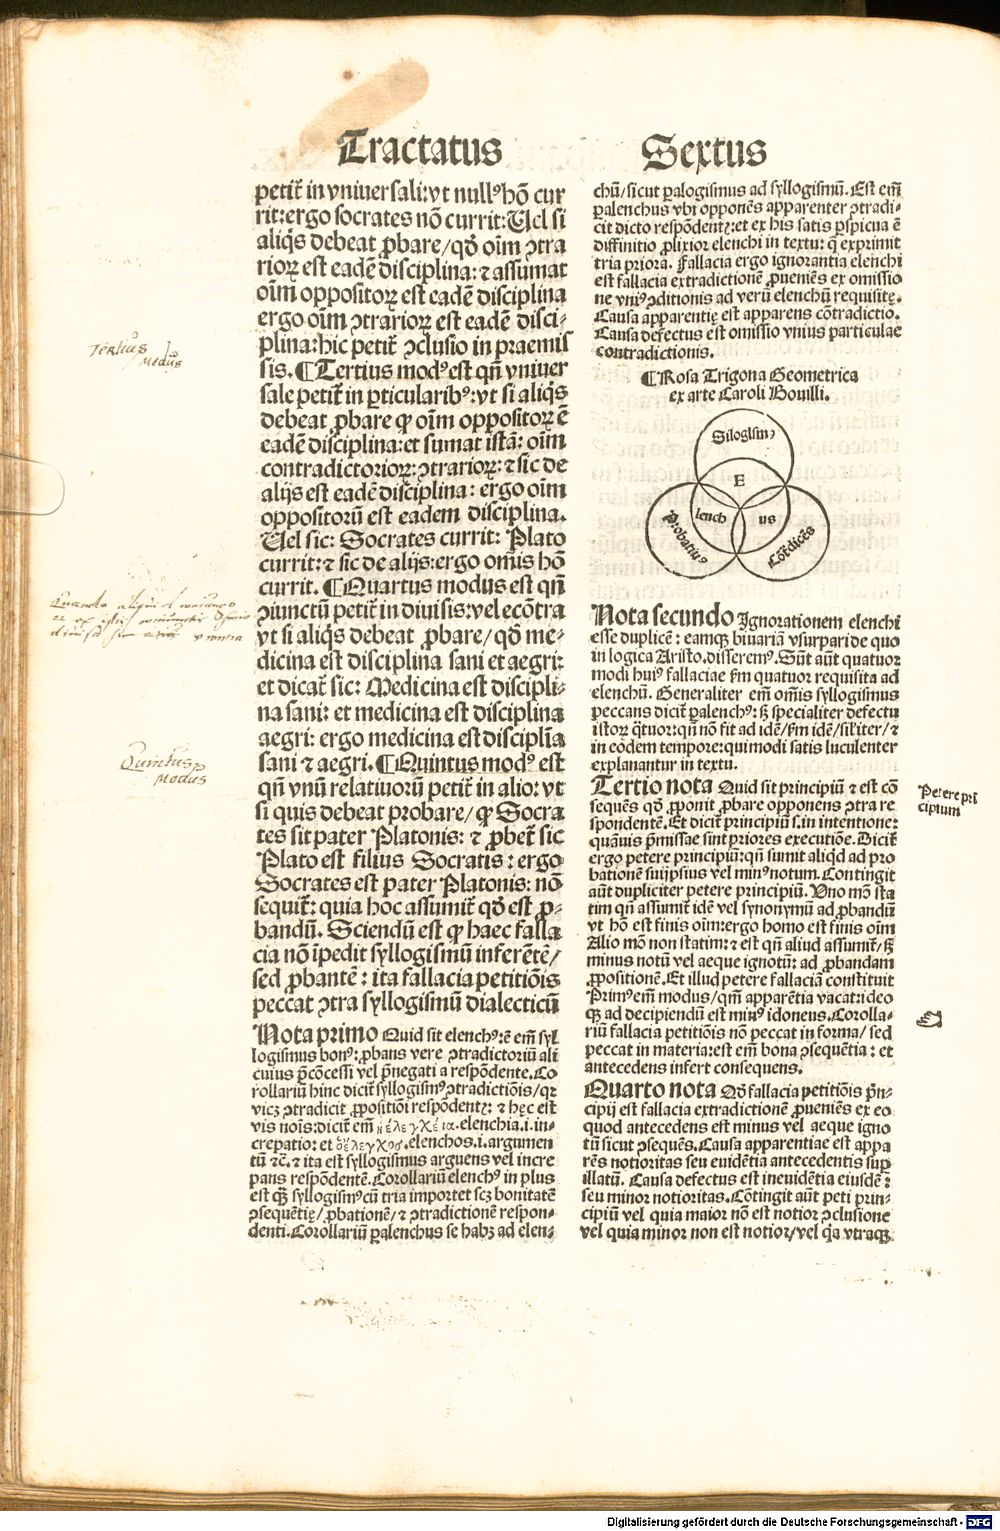 Tractatus Sextus
petit̄ in vniuersali: vt nullꝰ hō cur
rit: ergo socrates nō currit: Uel si
aliq̄s debeat ꝓbare / qđ oīm ↄtra
rioꝝ est eadē disciplina: ⁊ assumat
oīm oppositoꝝ est eadē disciplina
ergo oīm ↄtrarioꝝ est eadē disci-
plina: hic petit̄ ↄclusio in praemis
sis. ¶ Tertius modꝰ est qn̄ vniuer
sale petit̄ in ꝑticularibꝰ: vt si aliq̄s
debeat ꝓbare ꝙ oīm oppositoꝝ ē
eadē disciplina: et sumat istā: oīm
contradictorioꝝ: ↄtrarioꝝ: ⁊ sic de
alijs est eadē disciplina: ergo oīm
oppositorū est eadem disciplina.
Uel sic: Socrates currit: Plato
currit: ⁊ sic de alijs: ergo omīs hō
currit. ¶ Quartus modus est qn̄
ↄiunctū petit̄ in diuisis: vel ecōtra
vt si aliq̄s debeat ꝓbare / qđ me-
dicina est disciplina sani et aegri:
et dicat̄ sic: Medicina est discipli-
na sani: et medicina est disciplina
aegri: ergo medicina est disciplīa
sani ⁊ aegri. ¶ Quintus modꝰ est
qn̄ vnū relatiuorū petit̄ in alio: vt
si quis debeat probare / ꝙ Socra
tes sit pater Platonis: ⁊ ꝓbet̄ sic
Plato est filius Socratis: ergo
Socrates est pater Platonis: nō
sequit̄: quia hoc assumit̄ qđ est ꝓ-
bandū. Sciendū est ꝙ haec falla
cia nō īpedit syllogismū inferētē /
sed ꝓbantē: ita fallacia petitiōis
peccat ↄtra syllogismū dialecticū
Nota primo Quid sit elenchꝰ: ē em̄ syl
logismus bonꝰ: ꝓbans vere ↄtradictoriū ali
cuius p̄cōcessi vel p̄negati a respōdente. Co
rollariū hinc dicit̄ syllogismꝰ ↄtradictiōis / qꝛ
vicꝫ ↄtradicit ꝓpositiōi respōdentꝭ: ⁊ hęc est
vis nois: dicit̄ em̄ ἠ ἐλεγχέια. elenchia. i. in-
crepatio: et ὁ ἔλεγχος. elenchos. i. argumen
tū ⁊c̄. ⁊ ita est syllogismus arguens vel incre
pans respōdentē. Corollariū elenchꝰ in plus
est ꝙ̄ syllogismꝰ cū tria importet scꝫ bonitatē
ↄsequentię / ꝓbationē / ⁊ ↄtradictionē respon-
denti. Corollariū ꝑalenchus se habꝫ ad elen-
chū / sicut ꝑalogismus ad syllogismū. Est em̄
ꝑalenchus vbi opponēs apparenter ↄtradi-
cit dicto respōdentꝭ: et ex his satis ꝑspicua ē
diffinitio ꝓlixior elenchi in textu: q̄ exprimit
tria priora. Fallacia ergo ignorantia elenchi
est fallacia extradictionē ꝓueniēs ex omissio
ne vniꝰ ↄditionis ad verū elenchū requisitę.
Causa apparentię est apparens cōtradictio.
Causa defectus est omissio vnius particulae
contradictionis.
¶ Rosa Trigona Geometrica
ex arte Caroli Bouilli.
Silogismꝰ
E
lench us
Probatiuꝰ
Cōt̄dicēs
Nota secundo Ignorationem elenchi
esse duplicē: eamqꝫ biuariā vsurpari de quo
in logica Aristo. disseremꝰ. Sūt aūt quatuor
modi huiꝰ fallaciae fm̄ quatuor requisita ad
elenchū. Generaliter em̄ omīs syllogismus
peccans dicit̄ ꝑalenchꝰ: sꝫ specialiter defectu
istoꝝ q̄tuor: qn̄ nō fit ad idē / fm̄ idē / sil'iter / ⁊
in eōdem tempore: qui modi satis luculenter
explanantur in textu.
Tertio nota Quid sit principiū ⁊ est cō
sequēs qđ ꝓponit ꝓbare opponens ↄtra re
spondentē. Et dicit̄ principiū s. in intentione:
quāuis p̄missae sint priores executiōe. Dicit̄
ergo petere principiū: qn̄ sumit aliq̄d ad pro
bationē suijpsius vel minꝰ notum. Contingit
aūt dupliciter petere principiū. Uno mō sta
tim qn̄ assumit̄ idē vel synonymū ad ꝓbandū
vt hō est finis oīm: ergo homo est finis oīm
Alio mō non statim: ⁊ est qn̄ aliud assumit̄ / sꝫ
minus notū vel aeque ignotū: ad ꝓbandam
ꝓpositionē. Et illud petere fallaciā constituit
Primꝰ em̄ modus / qm̄ apparētia vacat: ideo
ꝙ̄ ad decipiendū est minꝰ idoneus. Corolla-
riū fallacia petitiōis nō peccat in forma / sed
peccat in materia: est em̄ bona ↄsequētia: et
antecedens infert consequens.
Quarto nota Qđ fallacia petitiōis p̄n-
cipij est fallacia extradictionē ꝓueniēs ex eo
quod antecedens est minus vel aeque igno
tū sicut ↄsequēs. Causa apparentiae est appa
rēs notioritas seu euidētia antecedentis sup̄
illatū. Causa defectus est ineuidētia eiusdē:
seu minor notioritas. Cōtingit aūt peti prin-
cipiū vel quia maior nō est notior ↄclusione
vel quia minor non est notior / vel q̄a vtraqꝫ
Tertius
Modus
Quintus
Modus
Petere pri
cipium
Digitalisierung gefördert durch die Deutsche Forschungsgemeinschaft - DFG